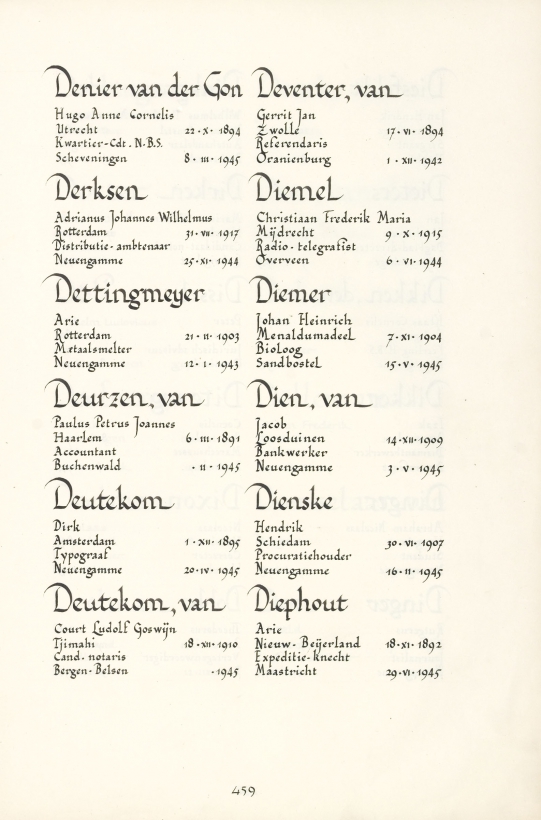 Denier van der Gon
Hugo Anne Cornelis
Utrecht 22·X·1894
Kwartier-Cdt. N.B.S.
Scheveningen 8·III·1945
Derksen
Adrianus Johannes Wilhelmus
Rotterdam 31·VII·1917
Distributie-ambtenaar
Neuengamme 25·XI·1944
Dettingmeyer
Arie
Rotterdam 21·II·1903
Metaalsmelter
Neuengamme 12·I·1943
Deurzen, van
Paulus Petrus Joannes
Haarlem 6·III·1891
Accountant
Buchenwald ·II·1945
Deutekom
Dirk
Amsterdam 1·XII·1895
Typograaf
Neuengamme 20·IV·1945
Deutekom, van
Court Ludolf Goswijn
Tjimahi 18·XII·1910
Cand. notaris
Bergen-Belsen ·1945
Deventer, van
Gerrit Jan
Zwolle 17·VI·1894
Referendaris
Oranienburg 1·XII·1942
Diemel
Christiaan Frederik Maria
Mijdrecht 9·X·1915
Radio-telegrafist
Overveen 6·VI·1944
Diemer
Johan Heinrich
Menaldumadeel 7·XI·1904
Bioloog
Sandbostel 15·V·1945
Dien, van
Jacob
Loosduinen 14·XII·1909
Bankwerker
Neuengamme 3·V·1945
Dienske
Hendrik
Schiedam 30·VI·1907
Procuratiehouder
Neuengamme 16·II·1945
Diephout
Arie
Nieuw-Beijerland 18·XI·1892
Expeditie-knecht
Maastricht 29·VI·1945
459